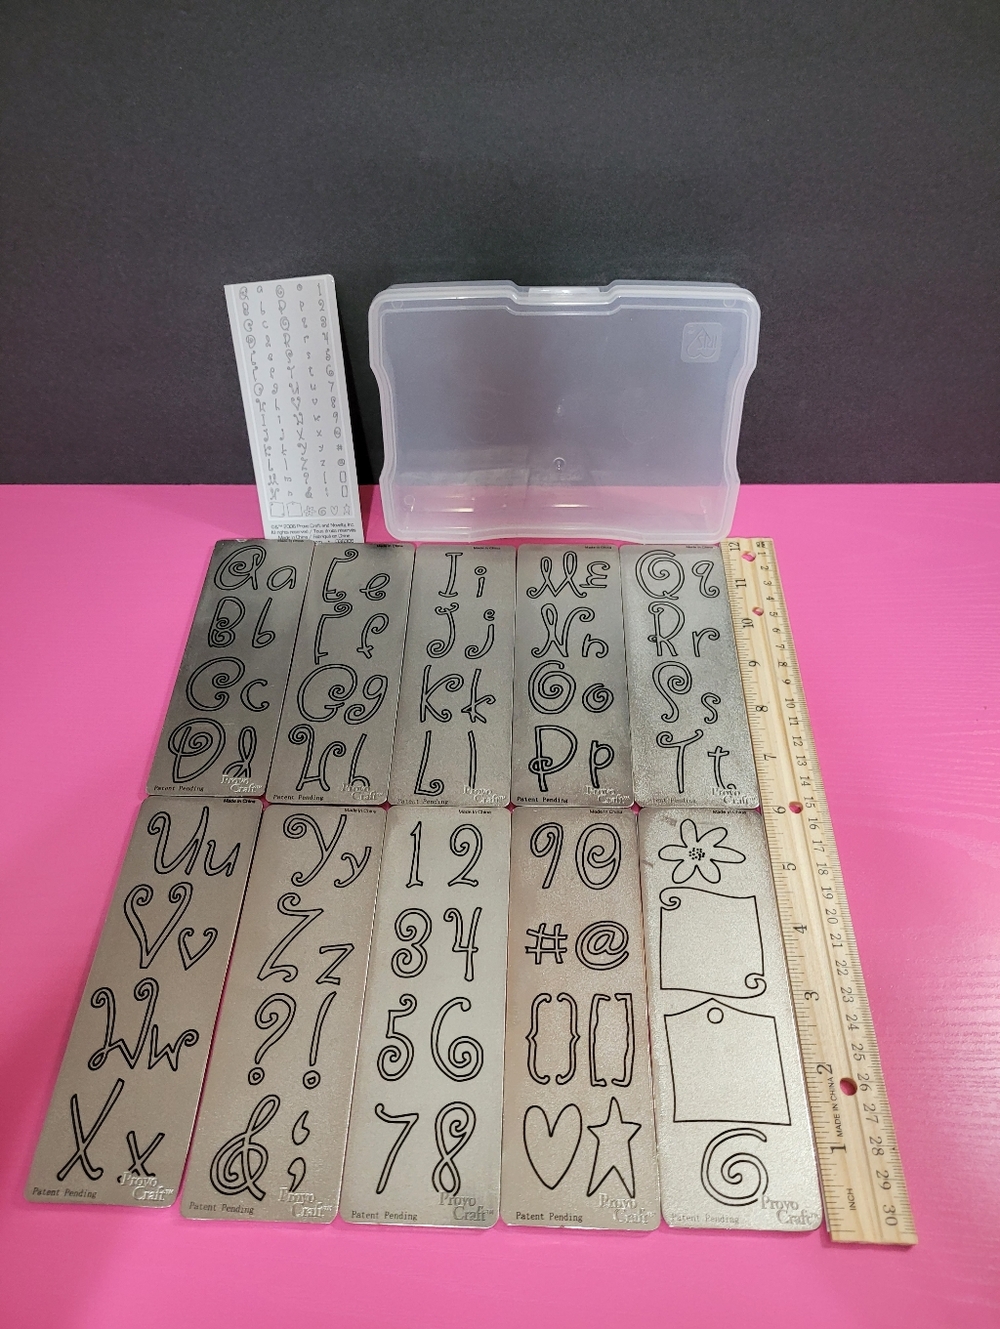 ©&™ 2006 Provo Craft and Novelty, Inc.
Made in China
Aa
Bb
Cc
Dd
Patent Pending
Provo Craft™
Made in China
Ee
Ff
Gg
Hh
Patent Pending
Provo Craft™
Made in China
Ii
Jj
Kk
Ll
Patent Pending
Provo Craft™
Made in China
Mm
Nn
Oo
Pp
Patent Pending
Provo Craft™
Made in China
Qq
Rr
Ss
Tt
Patent Pending
Provo Craft™
Made in China
Uu
Vv
Ww
Xx
Patent Pending
Provo Craft™
Made in China
Yy
Zz
?!
&;
Patent Pending
Provo Craft™
Made in China
12
34
56
78
Patent Pending
Provo Craft™
Made in China
90
#@
{}[]
Patent Pending
Provo Craft™
Made in China
Patent Pending
Provo Craft™
12
11
10
9
8
7
6
5
4
3
2
1
INCH
MADE IN CHINA
1 2 3 4 5 6 7 8 9 10 11 12 13 14 15 16 17 18 19 20 21 22 23 24 25 26 27 28 29 30